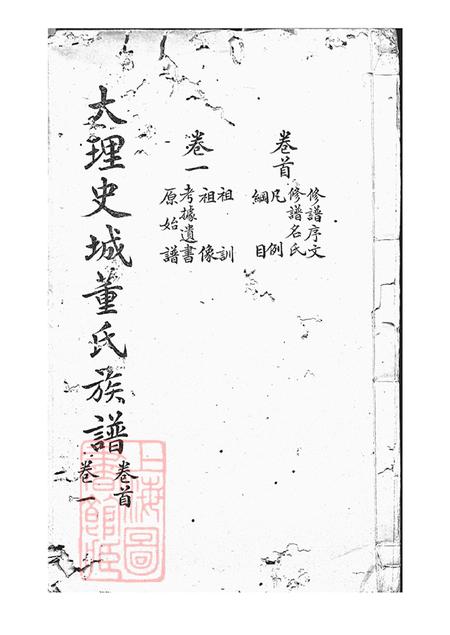 卷首
修譜序文
修譜名氏
凡例
綱目
卷一
祖訓
祖像
考據遺書
原始譜
大理史城董氏族譜
卷首
卷一
上海圖
書館藏